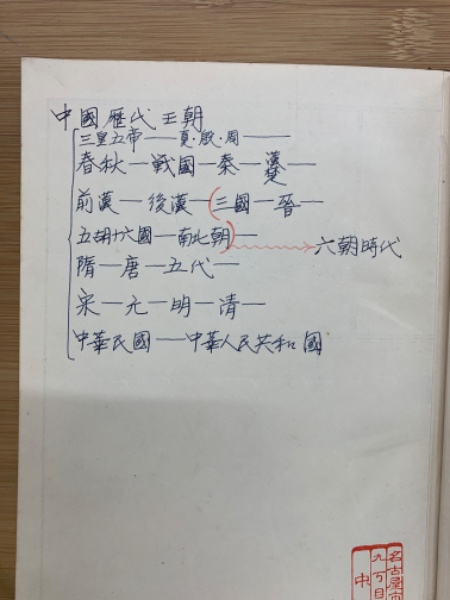 中國歷代王朝
三皇五帝——夏・殷・周——
春秋—戦國—秦—漢楚—
前漢—後漢—(三國—晉—
五胡十六國—南北朝)—→六朝時代
隋—唐—五代—
宋—元—明—清—
中華民國—中華人民共和國
名古屋市
九丁目
中